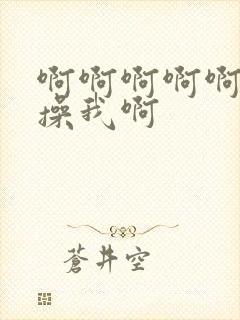 啊啊啊啊啊
操我啊
蒼井空